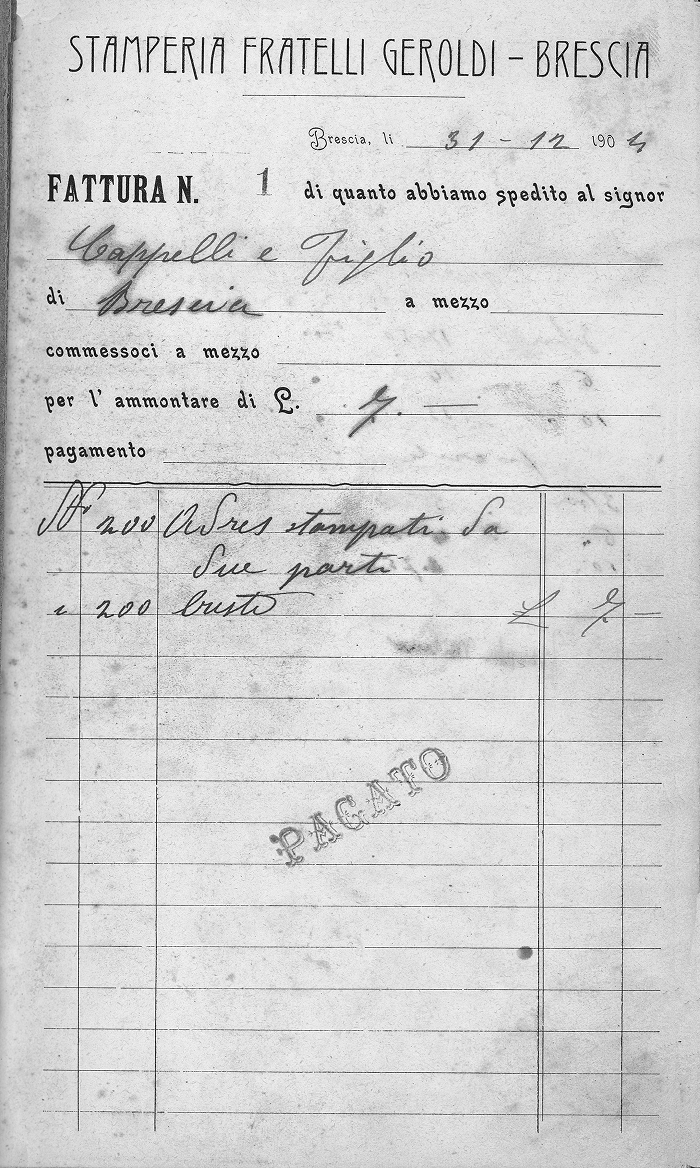 STAMPERIA FRATELLI GEROLDI – BRESCIA
Brescia, li 31 – 12 1904
FATTURA N. 1 di quanto abbiamo spedito al signor
Cappelli e Figlio
di Brescia a mezzo
commessoci a mezzo
per l' ammontare di £. 7. —
pagamento
No 200 Adres stampati da
due parti
" 200 buste £ 7 —
PAGATO